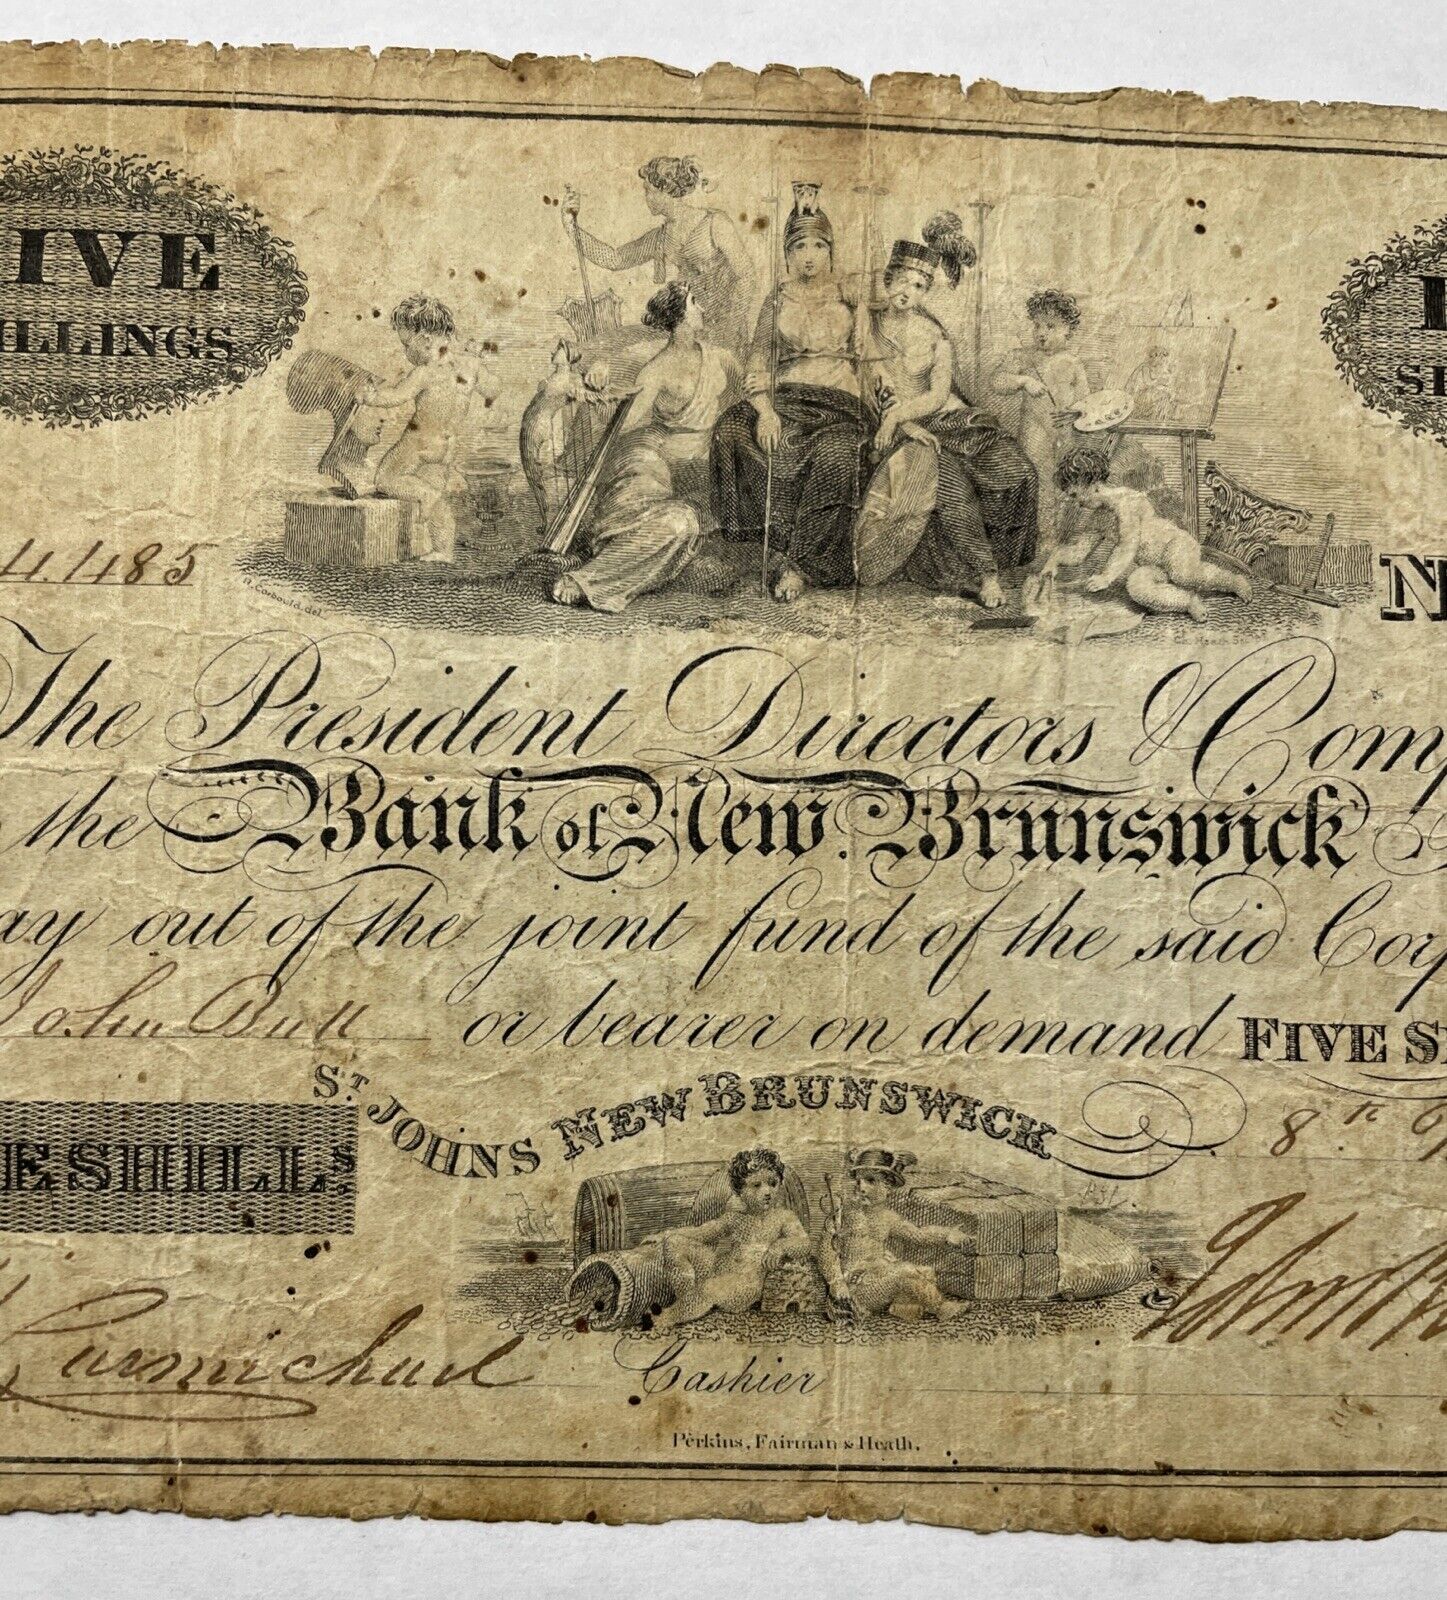 IVE
ILLINGS
4.1485
N
R. Corbould del.
The President Directors & Comp
the Bank of New Brunswick
ay out of the joint fund of the said Corp
John Bull or bearer on demand FIVE S
ST. JOHNS NEW BRUNSWICK
8th
E SHILLS
Carmichael
Cashier
Perkins, Fairman & Heath.